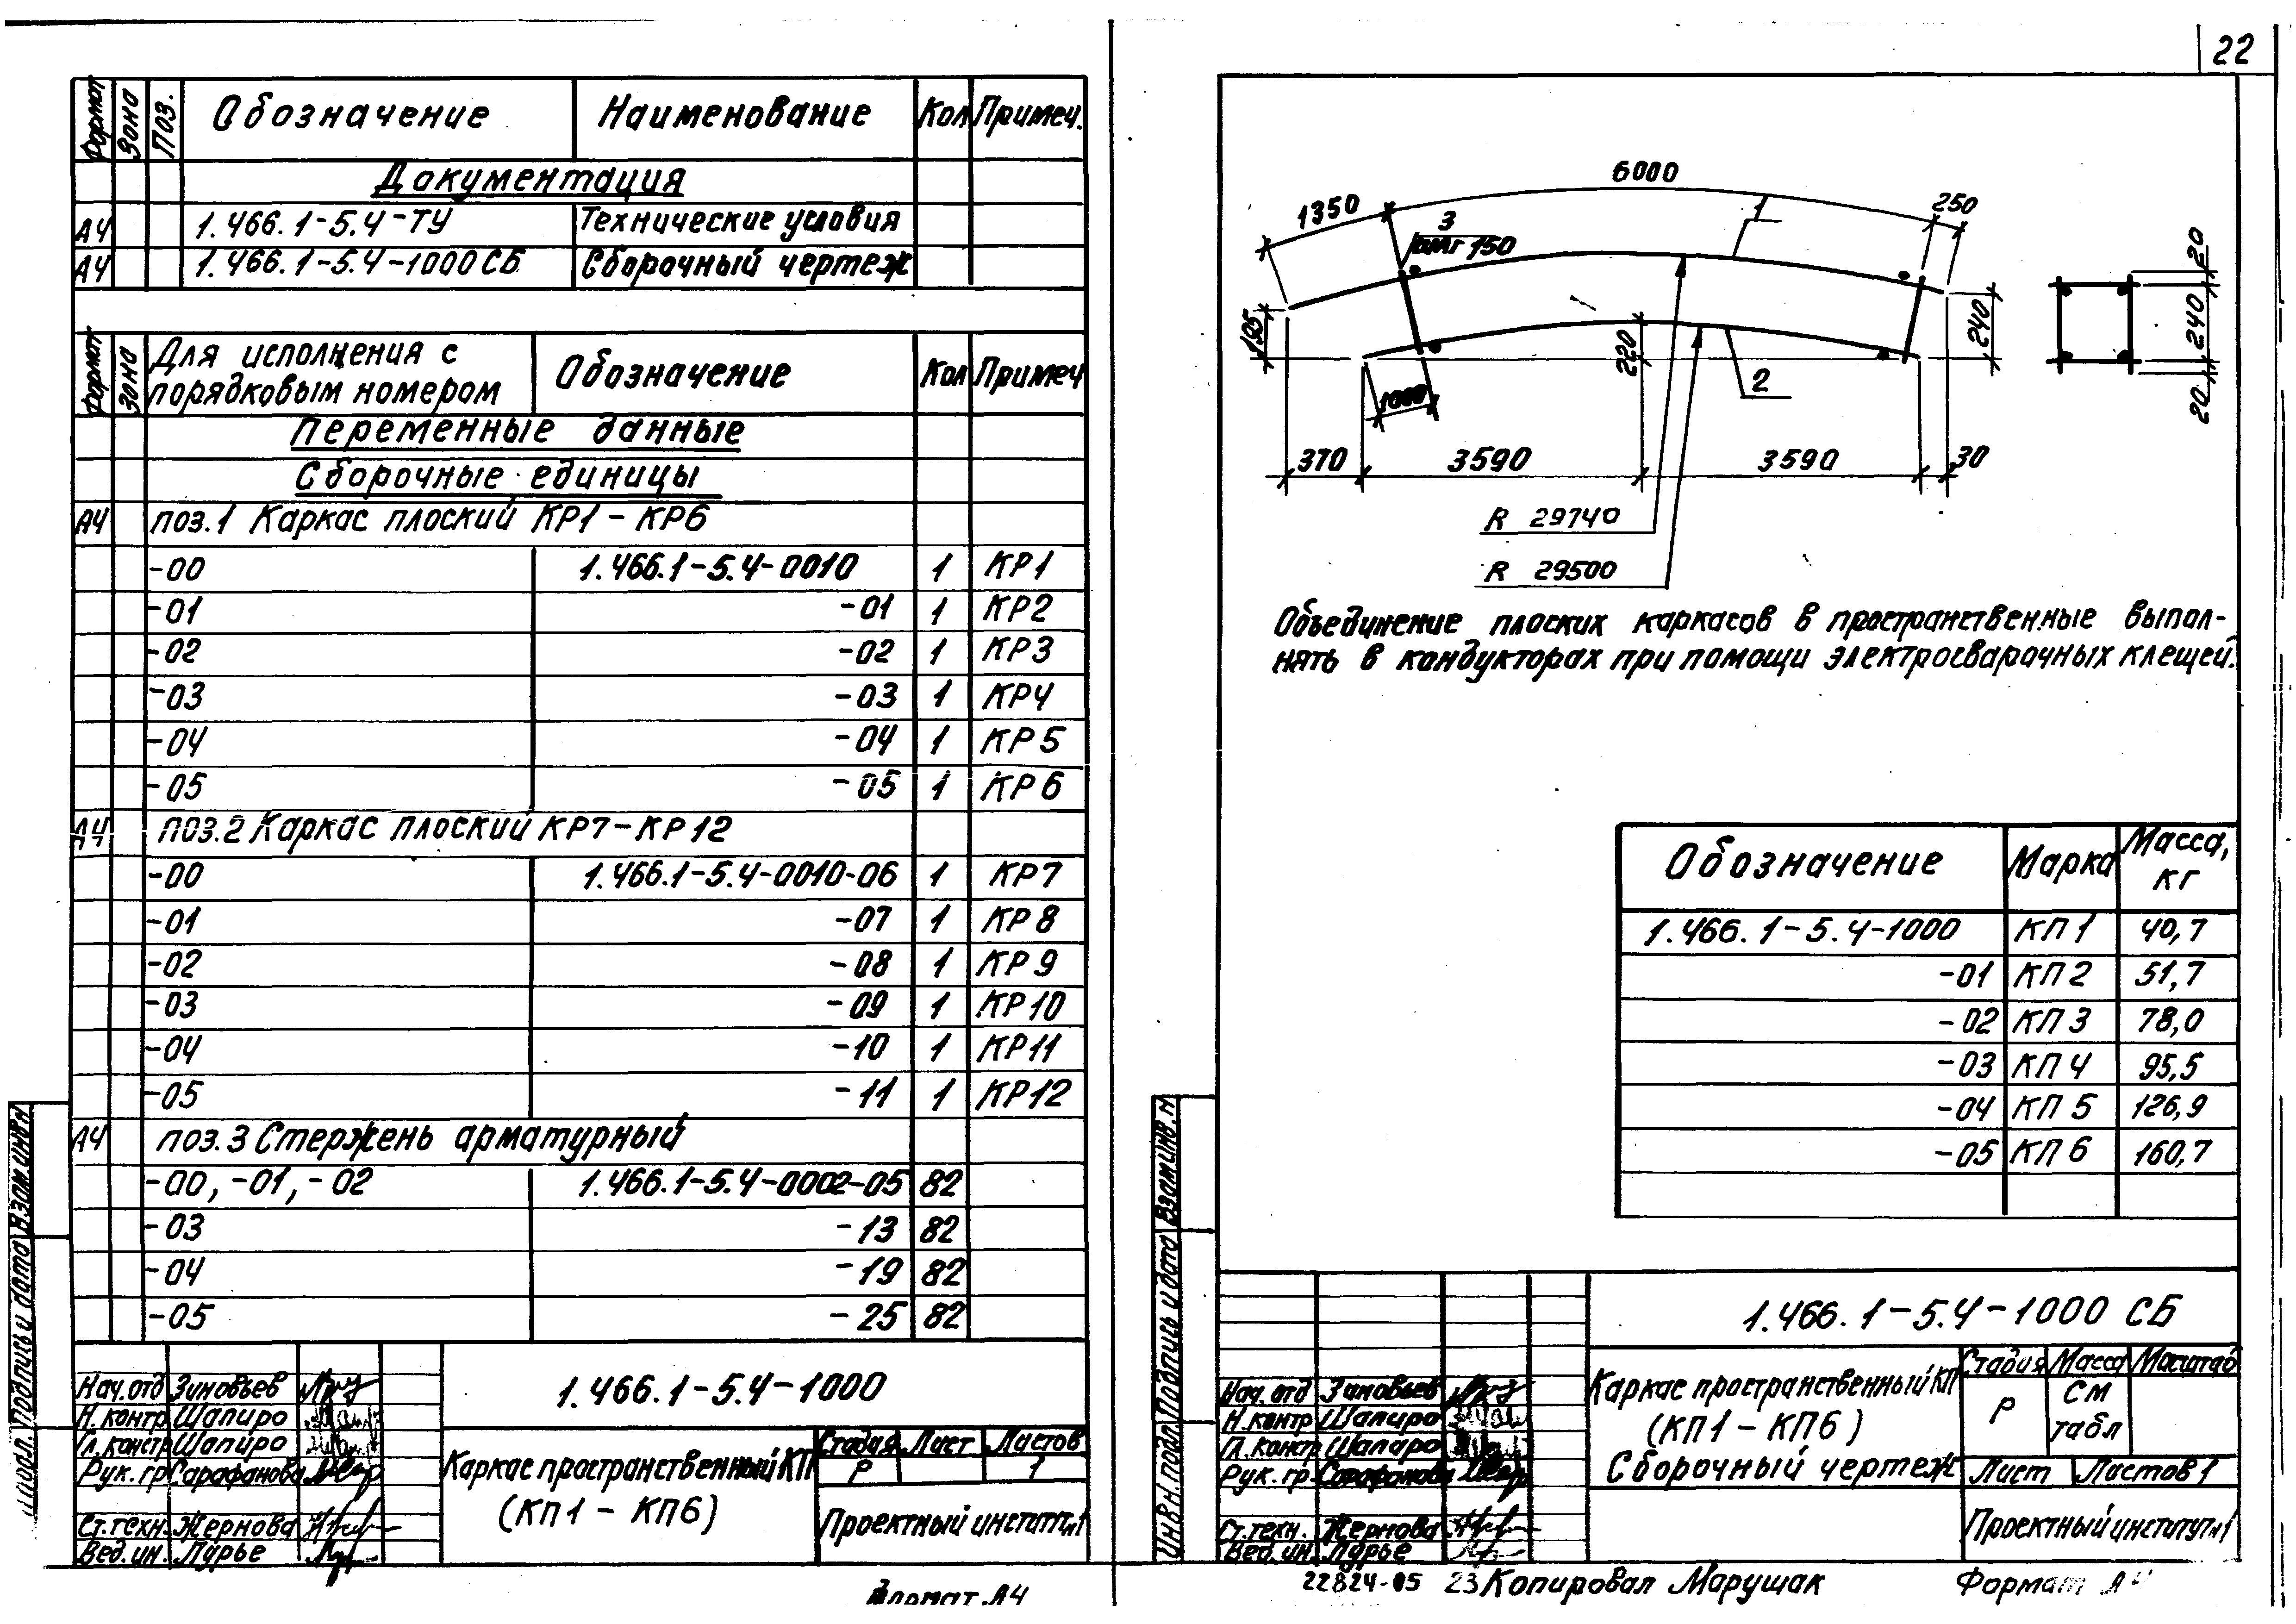 22
Формат Зона Поз. Обозначение Наименование Кол Примеч.
Документация
А4 1.466.1-5.4-ТУ Технические условия
А4 1.466.1-5.4-1000СБ Сборочный чертеж
Формат Зона Для исполнения с порядковым номером Обозначение Кол Примеч
Переменные данные
Сборочные единицы
А4 поз.1 Каркас плоский КР1-КР6
-00 1.466.1-5.4-0010 1 КР1
-01 -01 1 КР2
-02 -02 1 КР3
-03 -03 1 КР4
-04 -04 1 КР5
-05 -05 1 КР6
А4 поз.2 Каркас плоский КР7-КР12
-00 1.466.1-5.4-0010-06 1 КР7
-01 -07 1 КР8
-02 -08 1 КР9
-03 -09 1 КР10
-04 -10 1 КР11
-05 -11 1 КР12
А4 поз.3 Стержень арматурный
-00, -01, -02 1.466.1-5.4-0002-05 82
-03 -13 82
-04 -19 82
-05 -25 82
1.466.1-5.4-1000
Нач.отд Зиновьев
Н.контр Шапиро
Гл.констр Шапиро
Рук.гр Сарафанова
Ст.техн. Жернова
Вед.ин. Лурье
Каркас пространственный КП
(КП1-КП6)
Стадия Лист Листов
Р 1
Проектный институт №1
Взам.инв.№
Подпись и дата
Формат А4
6000
1350
250
3
шаг 150
1
195
220
240
2
1000
370 3590 3590 30
R 29740
R 29500
20
240
20
Объединение плоских каркасов в пространственные выпол-
нять в кондукторах при помощи электросварочных клещей.
Обозначение Марка Масса, кг
1.466.1-5.4-1000 КП1 40,7
-01 КП2 51,7
-02 КП3 78,0
-03 КП4 95,5
-04 КП5 126,9
-05 КП6 160,7
1.466.1-5.4-1000 СБ
Нач.отд Зиновьев
Н.контр Шапиро
Гл.констр Шапиро
Рук.гр. Сарафанова
Ст.техн. Жернова
Вед.ин. Лурье
Каркас пространственный КП
(КП1-КП6)
Сборочный чертеж
Стадия Масса Масштаб
Р См табл
Лист Листов 1
Проектный институт №1
Взам.инв.№
Подпись и дата
Инв.№ подл.
22824-05 23 Копировал Марущак Формат А4